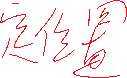 定位置